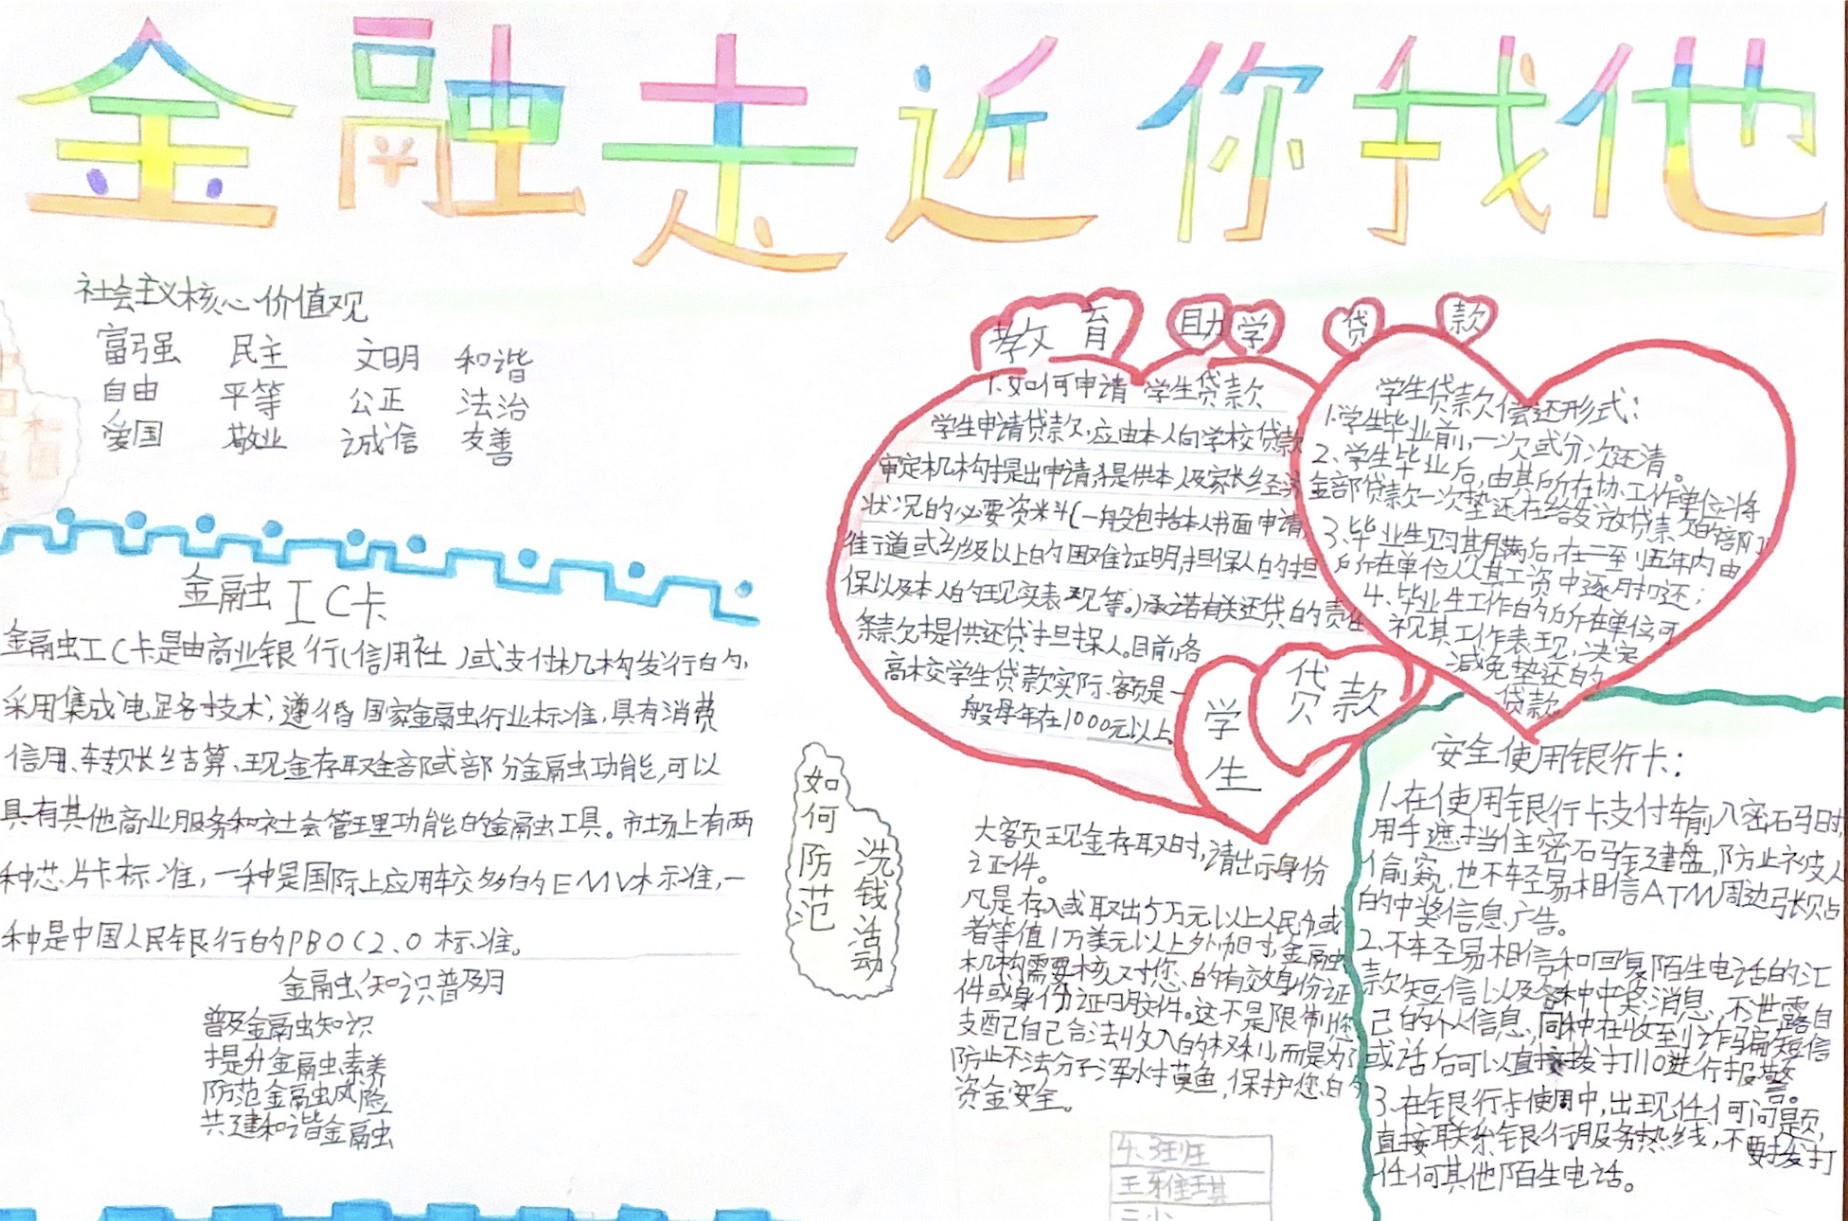 金融走近你我他
社会主义核心价值观
富强 民主 文明 和谐
自由 平等 公正 法治
爱国 敬业 诚信 友善
金融IC卡
金融IC卡是由商业银行(信用社)或支付机构发行的,
采用集成电路技术,遵循国家金融行业标准,具有消费
信用、转账结算、现金存取全部或部分金融功能,可以
具有其他商业服务和社会管理功能的金融工具。市场上有两
种芯片卡标准,一种是国际上应用较多的EMV标准,一
种是中国人民银行的PBOC2.0标准。
金融知识普及月
普及金融知识
提升金融素养
防范金融风险
共建和谐金融
教育助学贷款
1.如何申请学生贷款
学生申请贷款,应由本人向学校贷款
审定机构提出申请,提供本人及家长经济
状况的必要资料(一般包括本人书面申请,
街道或乡级以上的困难证明,担保人的担
保以及本人的现实表现等。)承诺有关还贷的责任
条款提供还贷担保人。目前,各
高校学生贷款实际客额是一
般每年在1000元以上
学生
贷款
学生贷款偿还形式:
1.学生毕业前,一次或分次还清。
2、学生毕业后,由其所在工作单位将
全部贷款一次垫还在给发放贷款的部门
3、毕业生见习期满后,在二至五年内由
所在单位从其工资中逐月扣还;
4、毕业生工作的所在单位可
视其工作表现,决定
减免垫还的
贷款
如何防范
洗钱活动
大客页现金存取时,请出示身份
证件。
凡是存入或取出5万元以上人民币或
者等值1万美元以上外币时,金融
机构需要核对您的有效身份证
件或身份证明文件。这不是限制您
支配自己合法收入的权利,而是为了
防止不法分子浑水摸鱼,保护您的
资金安全。
安全使用银行卡:
1.在使用银行卡支付输入密码时,
用手遮挡住密码键盘,防止被人
偷窥,也不轻易相信ATM周边张贴
的中奖信息广告。
2.不轻易相信和回复陌生电话的汇
款短信以及各种中奖消息,不泄露自
己的个人信息,同种在收到诈骗短信
或话后可以直接拨打110进行报警。
3.在银行卡使用中,出现任何问题,
直接联系银行服务热线,不要拨打
任何其他陌生电话。
4.3班
王雅琪